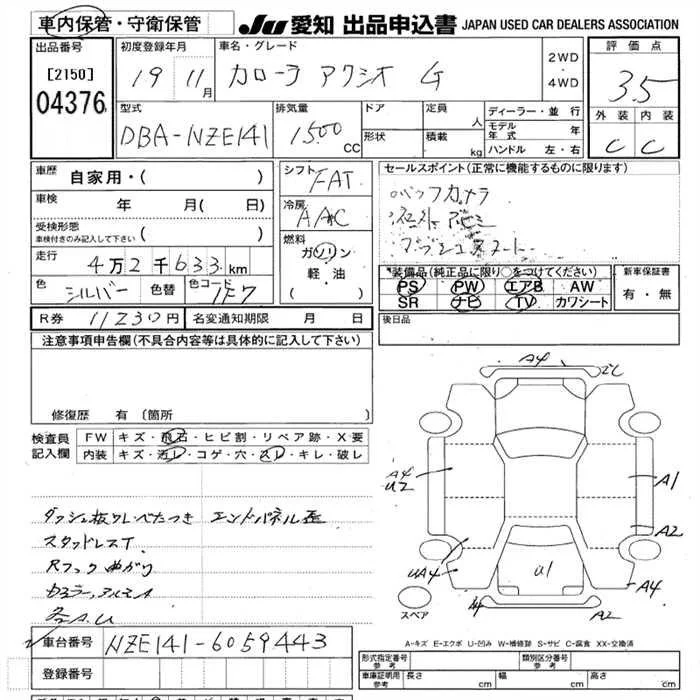 車内保管・守衛保管
JU 愛知 出品申込書 JAPAN USED CAR DEALERS ASSOCIATION
出品番号
[2150]
04376
初度登録年月
19年 11月
車名・グレード
カローラ アクシオ G
2WD
・
4WD
評価点
3.5
外装 内装
C C
型式
DBA-NZE141
排気量
1500cc
ドア
形状
定員 人
積載 kg
ディーラー・並行
モデル年式 年
ハンドル 左・右
車歴
自家用・( )
車検 年 月( 日)
受検形態
車検付きのみ記入して下さい ( )
走行 4万2千633km
色 シルバー 色替 色コード 1F7
シフト FAT
冷房 AAC
燃料
ガソリン
軽・油
( )
セールスポイント(正常に機能するものに限ります)
バックカメラ
プッシュスタート
装備品(純正品に限り○をつけてください)
PS PW エアB AW
SR ナビ TV カワシート
新車保証書
有・無
R券 11230円 名変通知期限 月 日
後日品
注意事項申告欄(不具合内容等は具体的に記入して下さい)
修復歴 有〔箇所 〕
検査員記入欄
FW キズ・飛石・ヒビ割・リペア跡・X要
内装 キズ・汚レ・コゲ・穴・スレ・キレ・破レ
ダッシュ板ワレべたつき エンドパネル歪
スタッドレスT
Rフック曲がり
各A.U
車台番号 NZE141-6059443
登録番号
A4
A4
U2
A1
A2
UA4
U1
A4
A4
A2
スペア
A-キズ E-エクボ U-凹み W-補修跡 S-サビ C-腐食 XX-交換済
型式指定番号 参考
類別区分番号 参考
車庫証明用 参考 長さ cm 幅 cm 高さ cm